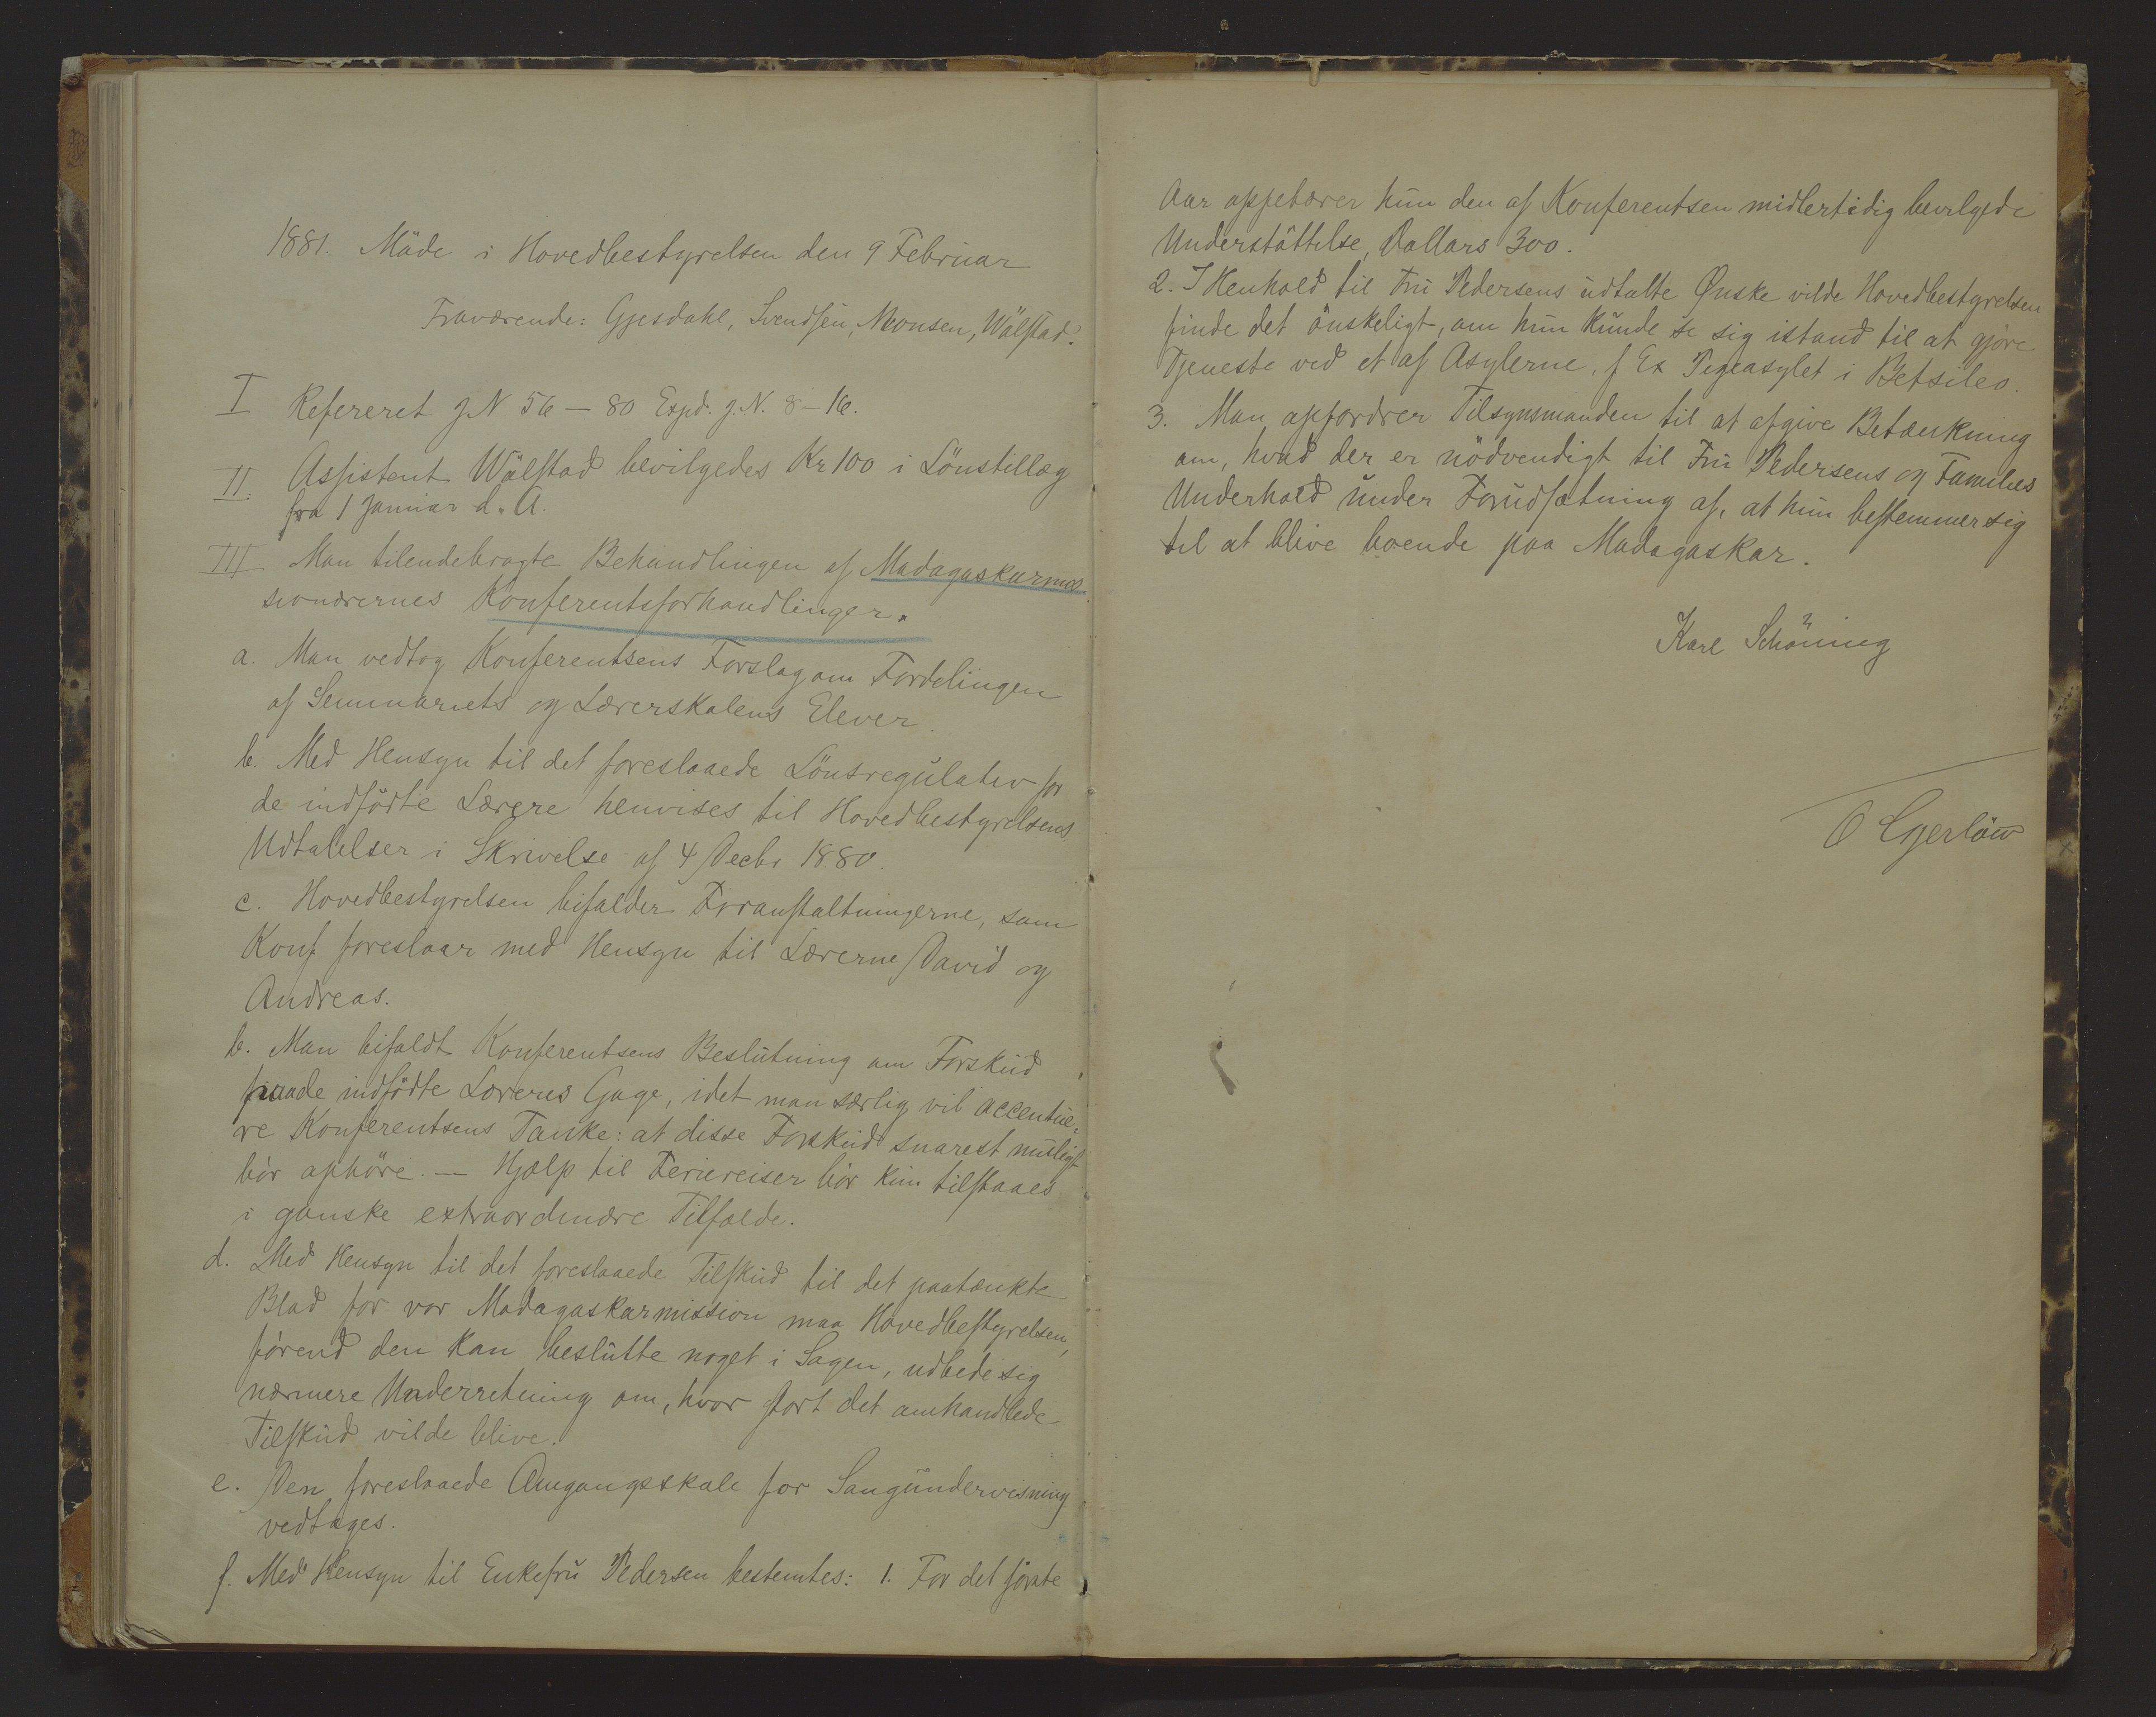 1881. Möde i Hovedbestyrelsen den 9 Februar
Fraværende: Gjesdahl, Svendsen, Monsen, Wålstad.
I Refereret J.N 56 – 80 Expd. J.N. 8–16.
II. Assistent Wålstad bevilgedes Kr 100 i Lönstillæg
fra 1 Januar d. A.
III Man tilendebragte Behandlingen af Madagaskarmis
sionærernes Konferentsforhandlinger.
a. Man vedtog Konferentsens Forslag om Fordelingen
af Seminariets og Lærerskolens Elever.
b. Med Hensyn til det foreslaaede Lönsregulativ for
de indfödte Lærere henvises til Hovedbestyrelsens
Udtalelser i Skrivelse af 4 Decbr 1880.
c. Hovedbestyrelsen bifalder Foranstaltningerne, som
Konf foreslaar med Hensyn til Lærerne David og
Andreas.
b. Man bifaldt Konferentsens Beslutning om Forskud
paa de indfödte Læreres Gage, idet man særlig vil accentue-
re Konferentsens Tanke: at disse Forskud snarest muligt
bör ophöre. — Hjælp til Feriereiser bör kun tilstaaes
i ganske extraordinære Tilfælde.
d. Med Hensyn til det foreslaaede Tilskud til det paatænkte
Blad for vor Madagaskarmission maa Hovedbestyrelsen,
förend den kan beslutte noget i Sagen, udbede sig
nærmere Underretning om, hvor stort det omhandlede
Tilskud vilde blive.
e. Den foreslaaede Omgangsskole for Sangundervisning
vedtages.
f. Med Hensyn til Enkefru Pedersen bestemtes: 1. For det förste
Aar oppebærer hun den af Konferentsen midlertidig bevilgede
Understöttelse, Dollars 300.
2. I Henhold til Fru Pedersens udtalte Ønske vilde Hovedbestyrelsen
finde det önskeligt, om hun kunde se sig istand til at gjöre
Tjeneste ved et af Asylerne, f Ex Pigeasylet i Betsileo.
3. Man opfordrer Tilsynsmanden til at afgive Betænkning
om, hvad der er nödvendigt til Fru Pedersens og Families
Underhold under Forudsætning af, at hun bestemmer sig
til at blive boende paa Madagaskar.
Karl Schöning
O Gjerlöw